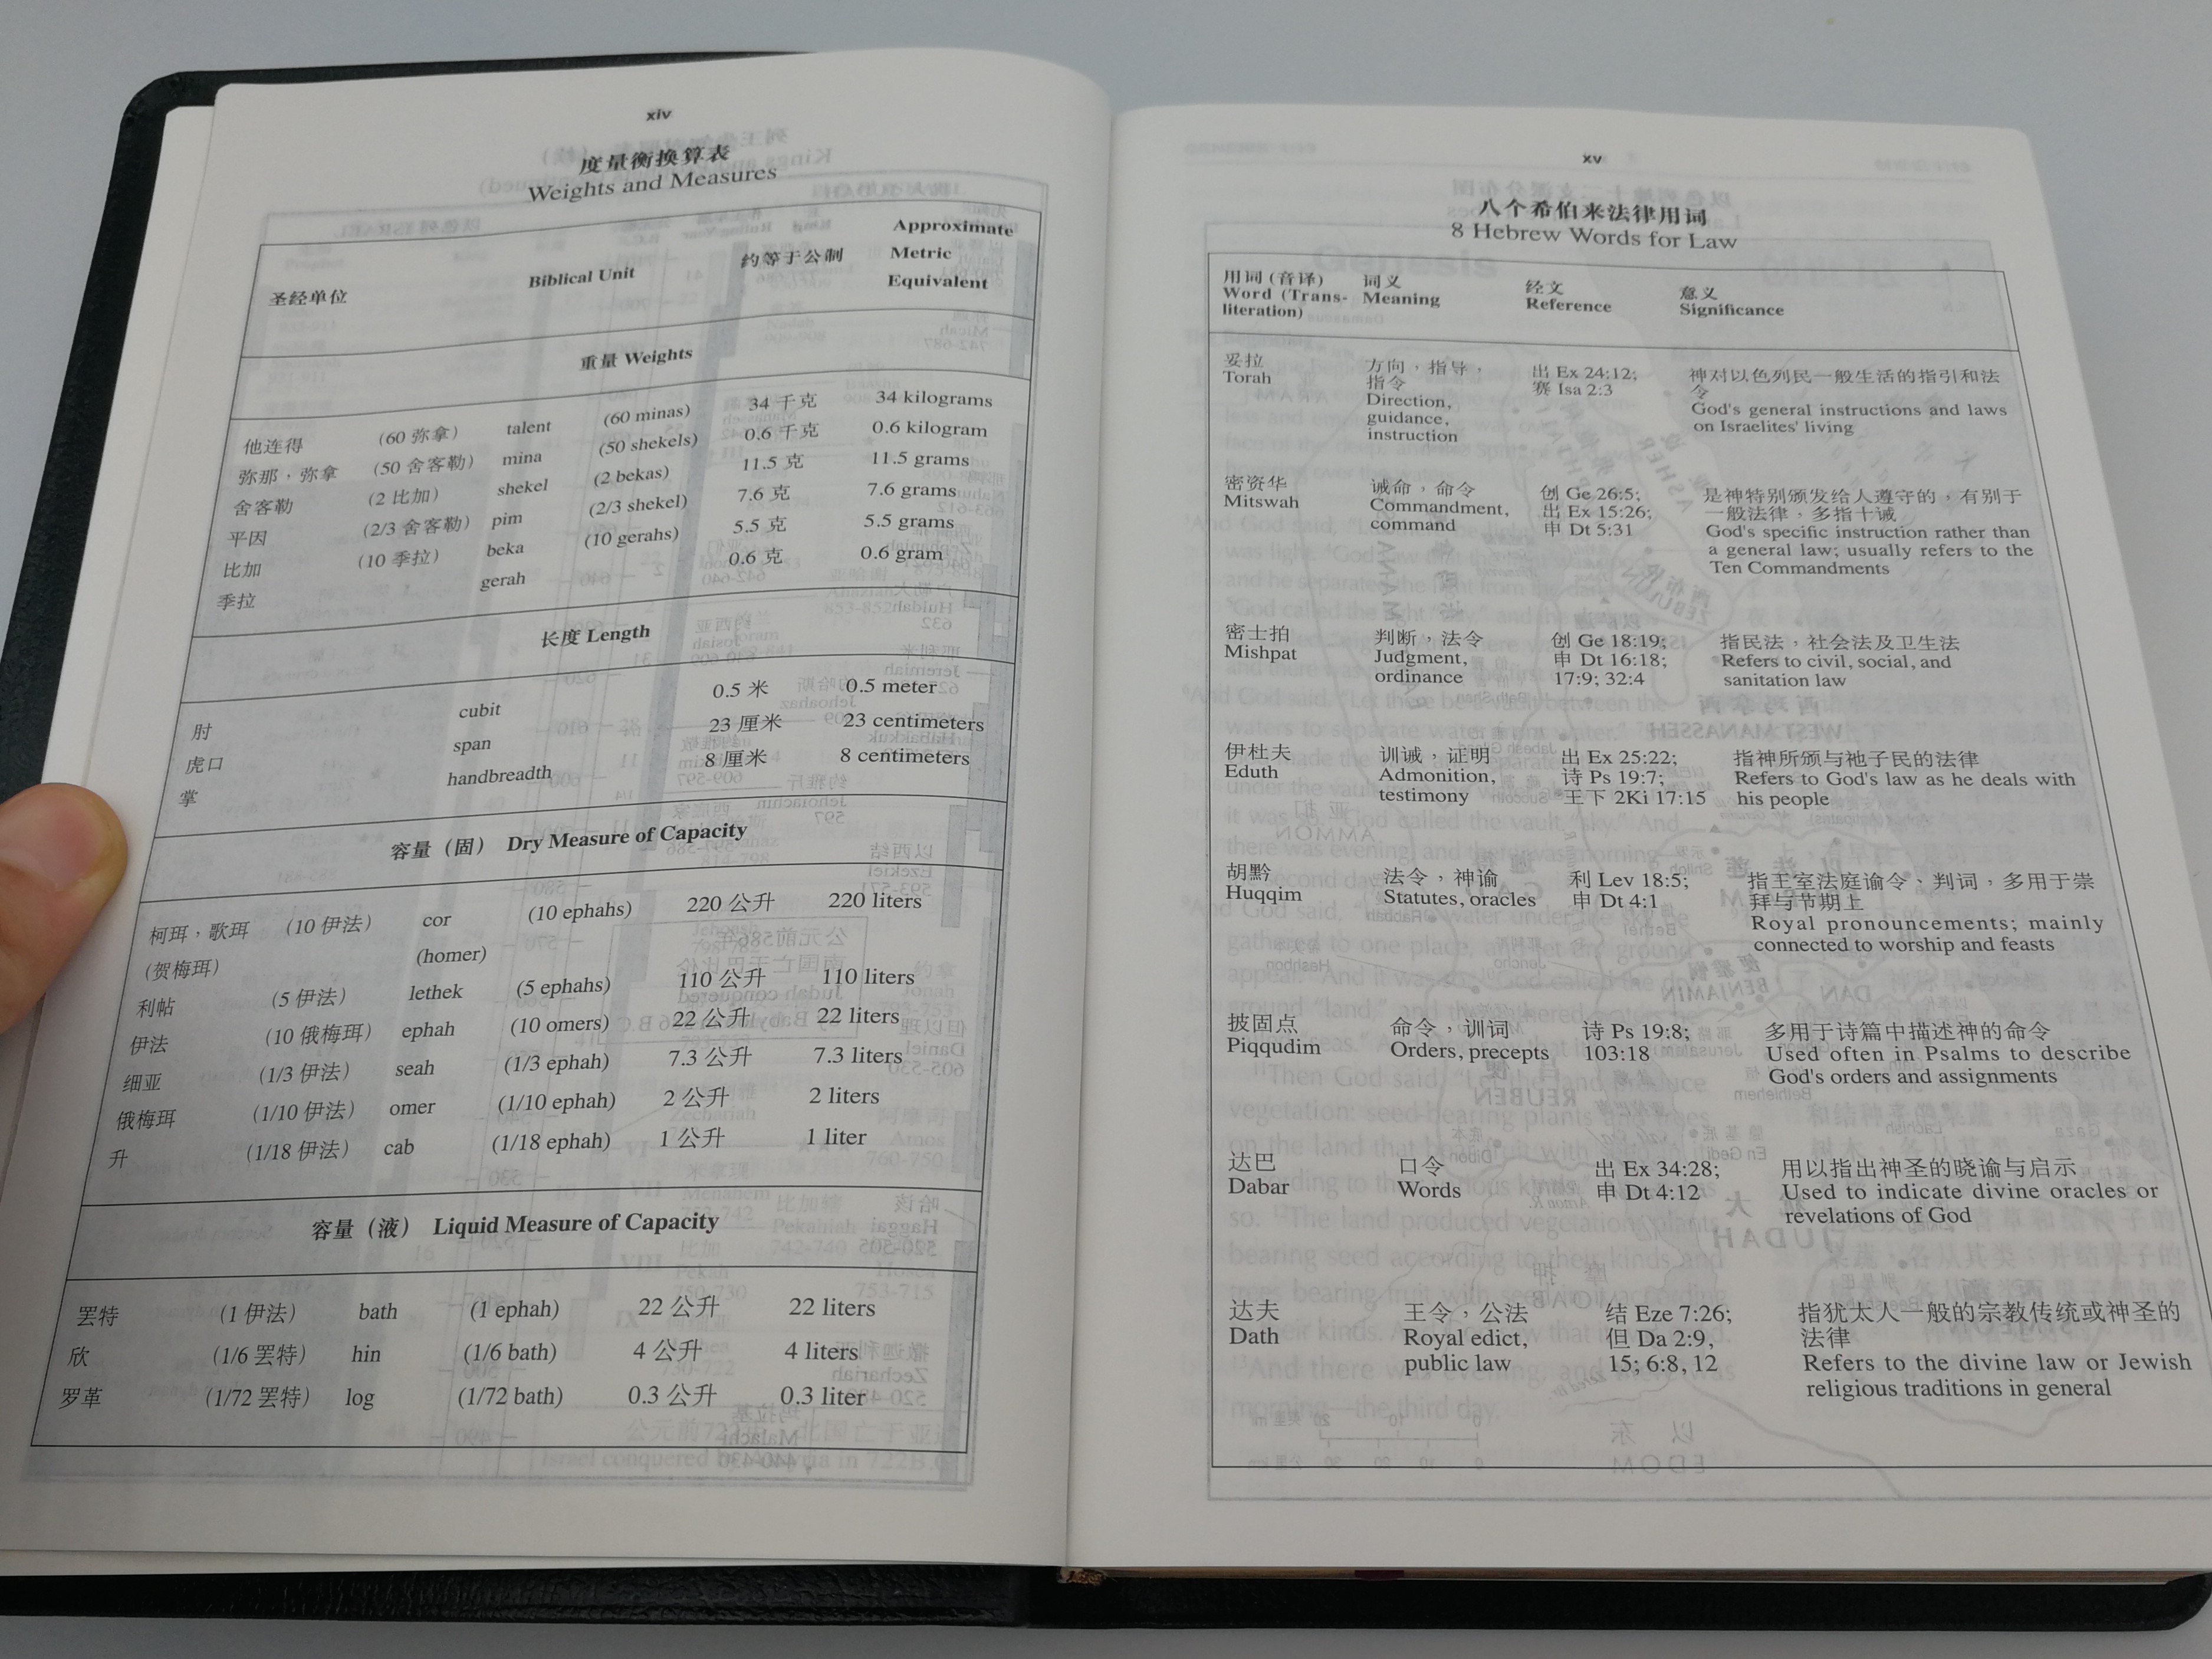 xiv
度量衡换算表
Weights and Measures
圣经单位 Biblical Unit 约等于公制 Approximate Metric Equivalent
重量 Weights
他连得 (60 弥拿) talent (60 minas) 34 千克 34 kilograms
弥那，弥拿 (50 舍客勒) mina (50 shekels) 0.6 千克 0.6 kilogram
舍客勒 (2 比加) shekel (2 bekas) 11.5 克 11.5 grams
平因 (2/3 舍客勒) pim (2/3 shekel) 7.6 克 7.6 grams
比加 (10 季拉) beka (10 gerahs) 5.5 克 5.5 grams
季拉 gerah 0.6 克 0.6 gram
长度 Length
肘 cubit 0.5 米 0.5 meter
虎口 span 23 厘米 23 centimeters
掌 handbreadth 8 厘米 8 centimeters
容量（固） Dry Measure of Capacity
柯珥，歌珥 (10 伊法) cor (10 ephahs) 220 公升 220 liters
(贺梅珥) (homer)
利帖 (5 伊法) lethek (5 ephahs) 110 公升 110 liters
伊法 (10 俄梅珥) ephah (10 omers) 22 公升 22 liters
细亚 (1/3 伊法) seah (1/3 ephah) 7.3 公升 7.3 liters
俄梅珥 (1/10 伊法) omer (1/10 ephah) 2 公升 2 liters
升 (1/18 伊法) cab (1/18 ephah) 1 公升 1 liter
容量（液） Liquid Measure of Capacity
罢特 (1 伊法) bath (1 ephah) 22 公升 22 liters
欣 (1/6 罢特) hin (1/6 bath) 4 公升 4 liters
罗革 (1/72 罢特) log (1/72 bath) 0.3 公升 0.3 liter
xv
八个希伯来法律用词
8 Hebrew Words for Law
用词 (音译) 词义 经文 意义
Word (Trans- Meaning Reference Significance
literation)
妥拉 方向，指导， 出 Ex 24:12; 神对以色列民一般生活的指引和法
Torah 指令 赛 Isa 2:3 令
Direction, God's general instructions and laws
guidance, on Israelites' living
instruction
密资华 诫命，命令 创 Ge 26:5; 是神特别颁发给人遵守的，有别于
Mitswah Commandment, 出 Ex 15:26; 一般法律，多指十诫
command 申 Dt 5:31 God's specific instruction rather than
a general law; usually refers to the
Ten Commandments
密士拍 判断，法令 创 Ge 18:19; 指民法，社会法及卫生法
Mishpat Judgment, 申 Dt 16:18; Refers to civil, social, and
ordinance 17:9; 32:4 sanitation law
伊杜夫 训诫，证明 出 Ex 25:22; 指神所颁与祂子民的法律
Eduth Admonition, 诗 Ps 19:7; Refers to God's law as he deals with
testimony 王下 2Ki 17:15 his people
胡黔 法令，神谕 利 Lev 18:5; 指王室法庭谕令、判词，多用于崇
Huqqim Statutes, oracles 申 Dt 4:1 拜与节期上
Royal pronouncements; mainly
connected to worship and feasts
披固点 命令，训词 诗 Ps 19:8; 多用于诗篇中描述神的命令
Piqqudim Orders, precepts 103:18 Used often in Psalms to describe
God's orders and assignments
达巴 口令 出 Ex 34:28; 用以指出神圣的晓谕与启示
Dabar Words 申 Dt 4:12 Used to indicate divine oracles or
revelations of God
达夫 王令，公法 结 Eze 7:26; 指犹太人一般的宗教传统或神圣的
Dath Royal edict, 但 Da 2:9, 法律
public law 15; 6:8, 12 Refers to the divine law or Jewish
religious traditions in general